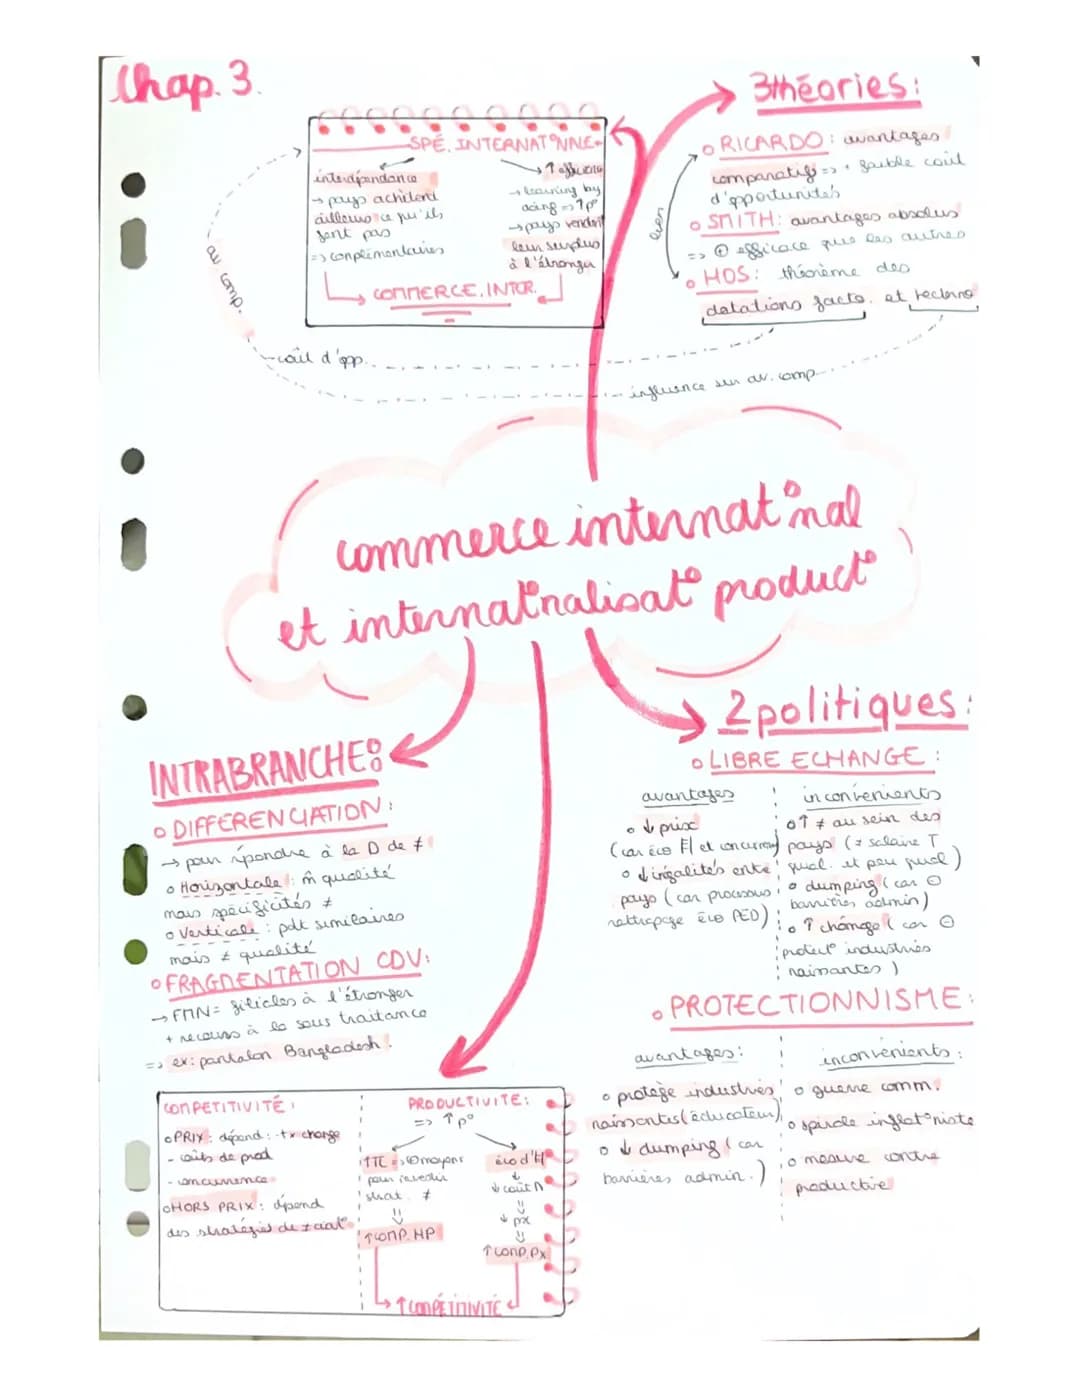 Chap. 3.
SPÉ. INTERNAT°NALE
interdépendance
→ pays achètent
ailleurs ce qu'ils
font pas
=> complémentaires
↑ efficience
→ learning by
doing => ↑p°
→ pays vendent
leur surplus
à l'étranger
COMMERCE. INTER.
av comp.
coût d'opp.
influence sur av. comp.
3 théories:
o RICARDO: avantages
comparatifs => + faible coût
d'opportunités
o SMITH: avantages absolus
=> ⊕ efficace que les autres
o HOS: théorème des
dotations facto. et techno
lien
commerce internat°nal
et internat°nalisat° product°
INTRABRANCHE:
o DIFFERENCIATION:
→ pour répondre à la D de ≠
o Horizontale: m̂ qualité
mais spécificités ≠
o Verticale: pdt similaires
mais ≠ qualité
o FRAGMENTATION CDV:
→ FMN = filiales à l'étranger
+ recours à la sous traitance
=> ex: pantalon Bangladesh.
2 politiques:
o LIBRE ECHANGE:
avantages
o ↓ prix
(car éco El et concurrence)
o ↓ inégalités entre
pays (car processus
rattrapage éco PED)
inconvénients
o ↑ ≠ au sein des
pays (≠ salaire T
qual. et peu qual)
o dumping (car ⊖
barrières admin)
o ↑ chômage (car ⊖
protect° industries
naissantes)
o PROTECTIONNISME:
avantages:
o protège industries
naissantes (éducateur)
o ↓ dumping (car
barrières admin.)
inconvénients:
o guerre comm.
o spirale inflat°niste
o mesure contre
productive
COMPETITIVITÉ:
o PRIX: dépend: - tx change
- coûts de prod
- concurrence
o HORS PRIX: dépend
des stratégies de ≠ciat°
PRODUCTIVITE:
=> ↑p°
↑TC => ⊕ moyens
pour investir
strat. ≠
⇓
↑ COMP. HP
éco d'El
↓
↓ coût
⇓
↓ px
⇓
↑ COMP. Px
↑ COMPÉTITIVITÉ